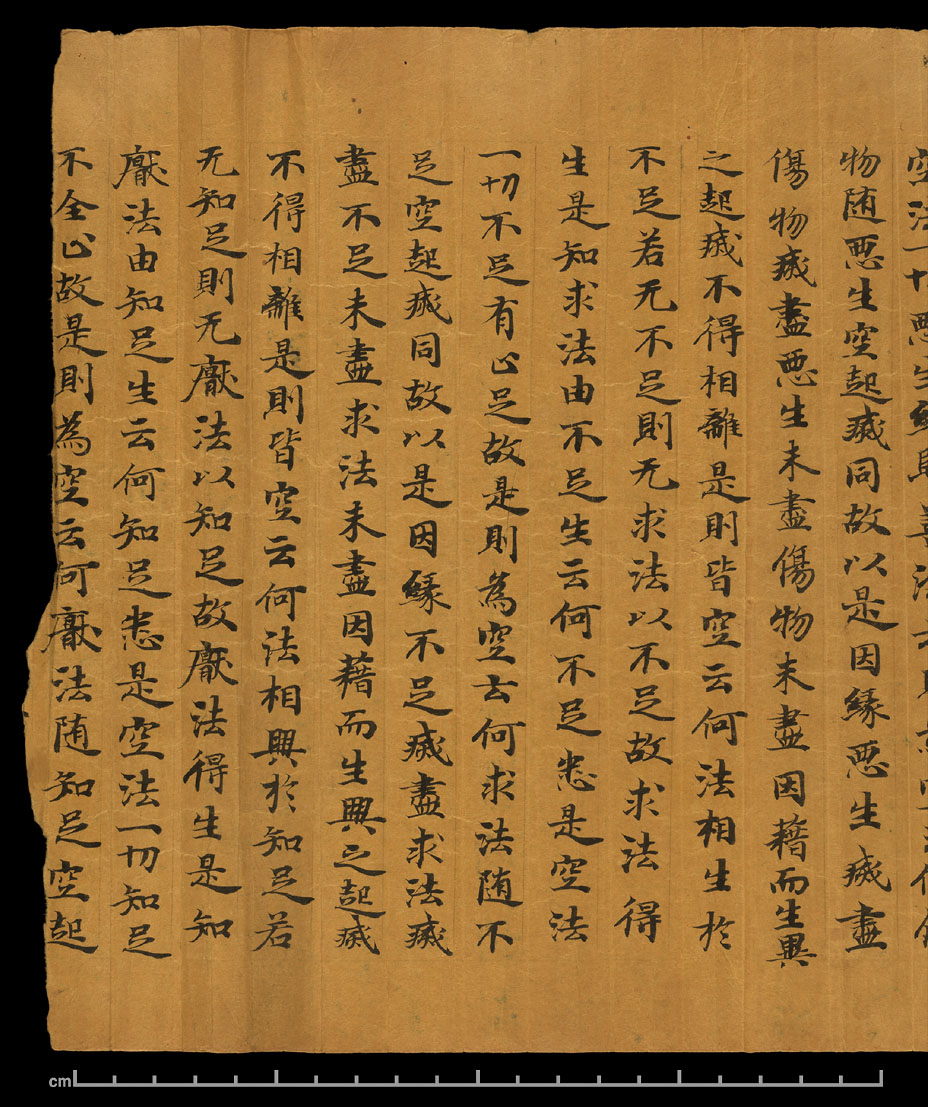 空法一切惡生
物随惡生空起滅同故以是因緣惡生滅盡
傷物滅盡惡生未盡傷物未盡因藉而生興
之起滅不得相離是則皆空云何法相生於
不足若无不足則无求法以不足故求法得
生是知求法由不足生云何不足悉是空法
一切不足有止足故是則為空云何求法随不
足空起滅同故以是因緣不足滅盡求法滅
盡不足未盡求法未盡因藉而生興之起滅
不得相離是則皆空云何法相興於知足若
无知足則无厭法以知足故厭法得生是知
厭法由知足生云何知足悉是空法一切知足
不全止故是則為空云何厭法随知足空起
cm